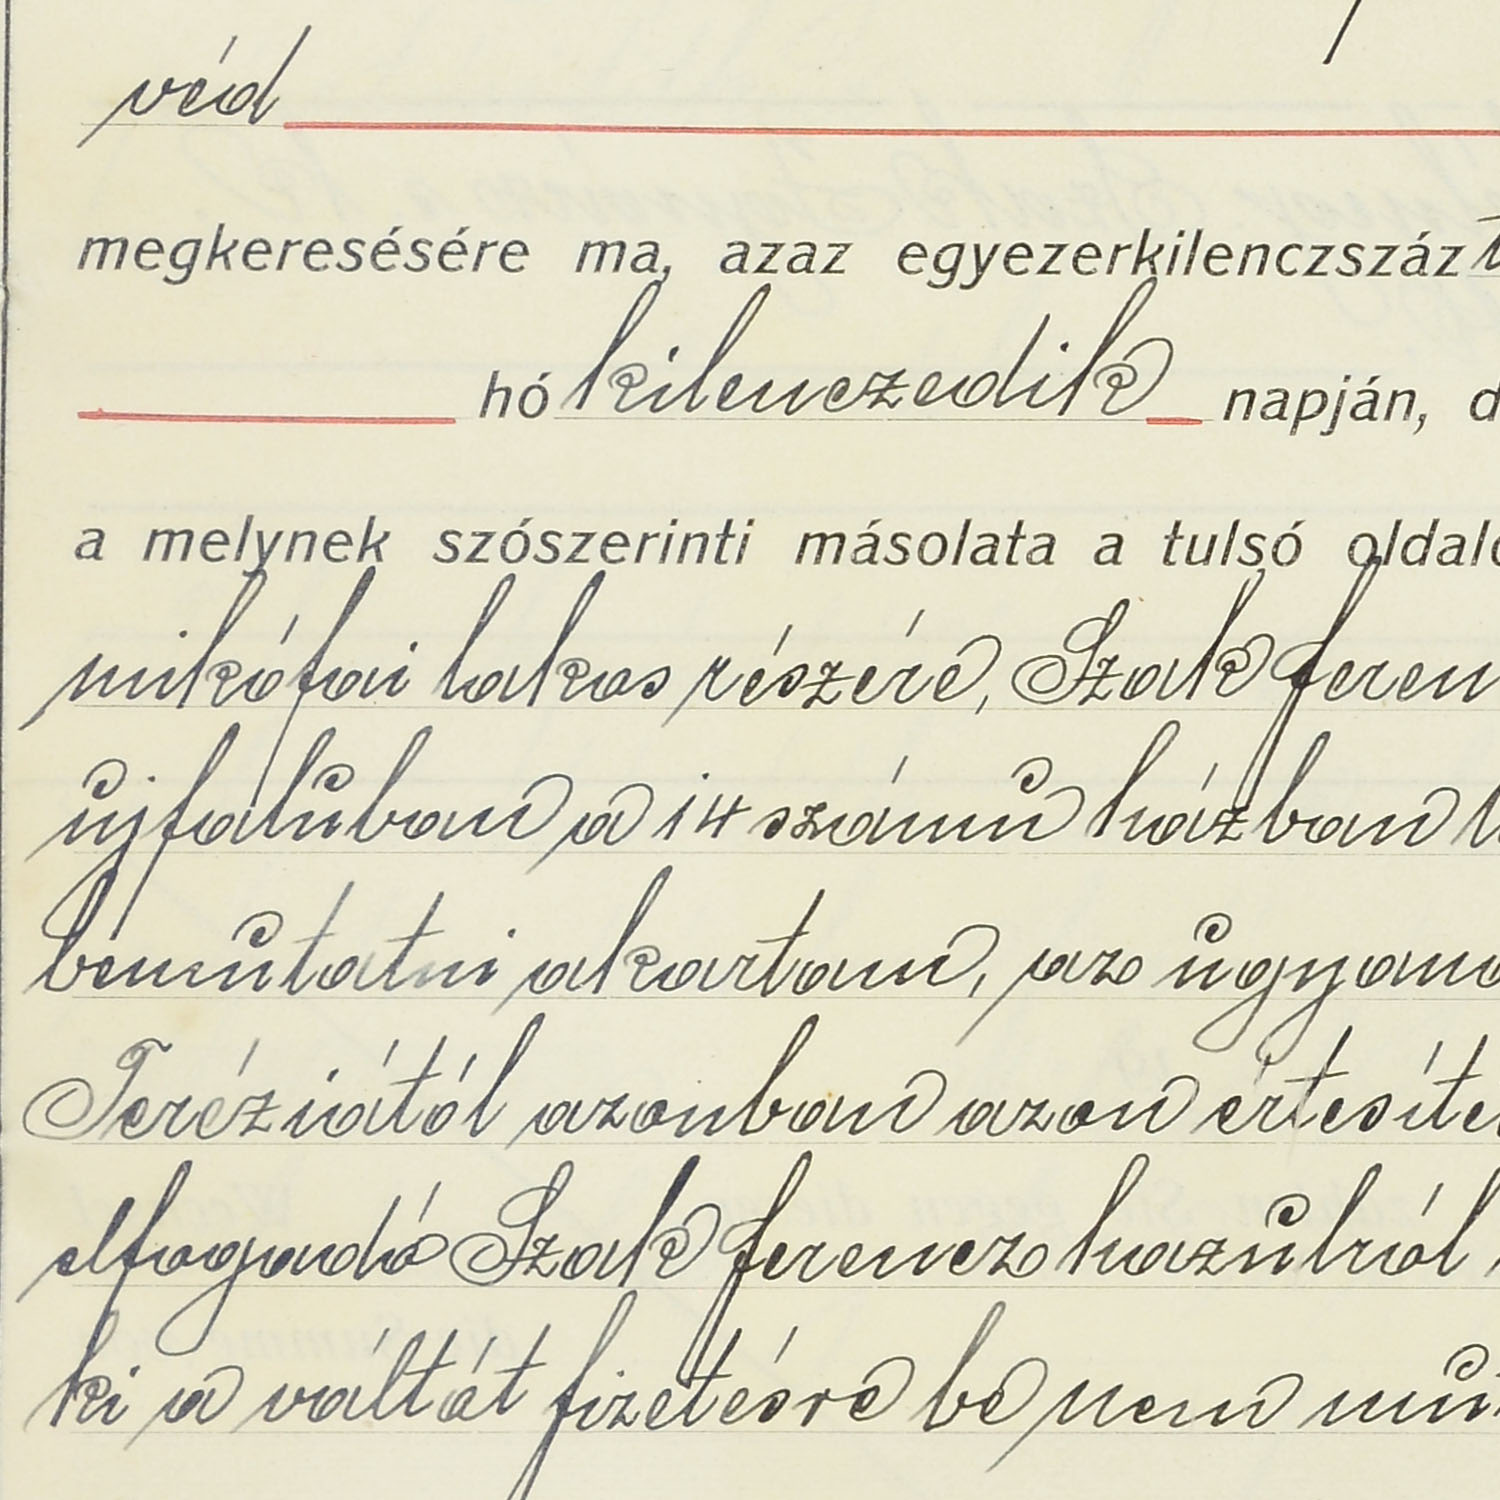 véd
megkeresésére ma, azaz egyezerkilenczszáz
hó kilenczedik napján, d
a melynek szószerinti másolata a tulsó oldalo
mikófai lakos részére, Szak feren
újfaluban a 14 számú házban
bemutatni akartam, az ugyano
Teréziától azonban azon értesíte
elfogadó Szak ferencz hazulról
ki a váltót fizetésre be nem mu